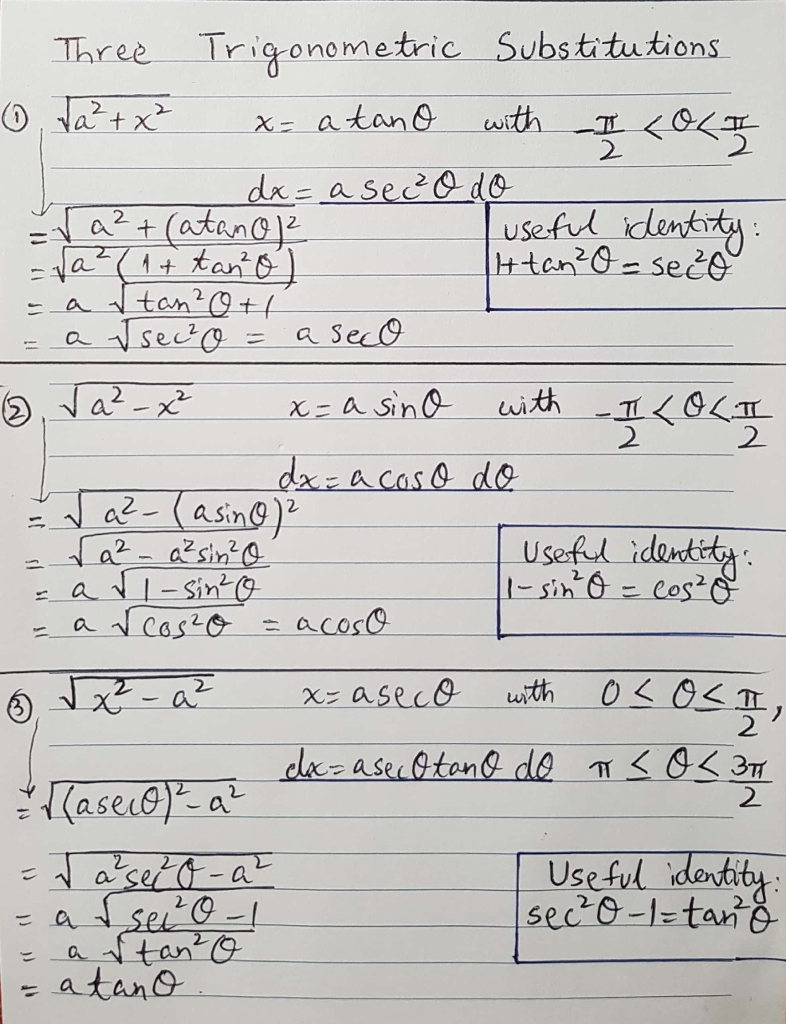 Three Trigonometric Substitutions
① √a²+x² x= a tanθ with -π/2 <θ<π/2
dx= a sec²θ dθ
=√a²+(atanθ)²
=√a²(1+ tan²θ)
= a √tan²θ+1
= a √sec²θ = a secθ
useful identity:
1+tan²θ=sec²θ
② √a²-x² x= a sinθ with -π/2 <θ<π/2
dx= a cosθ dθ
= √a²-(asinθ)²
= √a²-a²sin²θ
= a √1-sin²θ
= a √cos²θ = acosθ
Useful identity:
1-sin²θ = cos²θ
③ √x²-a² x= asecθ with 0≤θ≤π/2,
dx=asecθtanθ dθ π≤θ≤3π/2
=√(asecθ)²-a²
= √a²sec²θ-a²
= a √sec²θ-1
= a √tan²θ
= atanθ.
Useful identity:
sec²θ-1=tan²θ